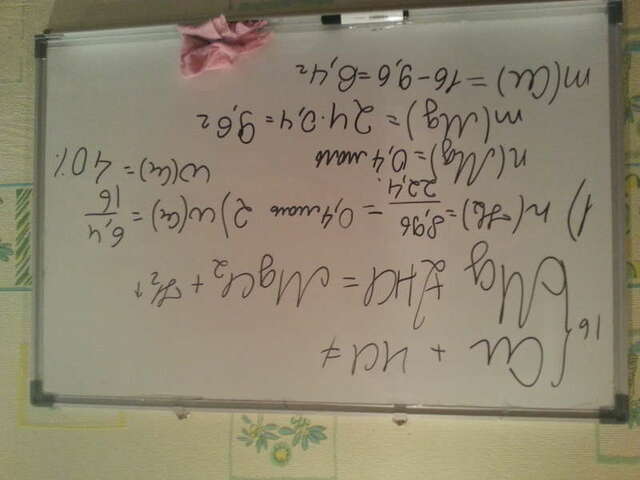 16 { Cu + HCl ≠
Mg + 2HCl = MgCl₂ + H₂↑
1) n(H₂) = 8,96 / 22,4 = 0,4 моль 2) ω(Cu) = 6,4 / 16
n(Mg) = 0,4 моль ω(Cu) = 40%
m(Mg) = 24·0,4 = 9,6г
m(Cu) = 16-9,6 = 6,4г